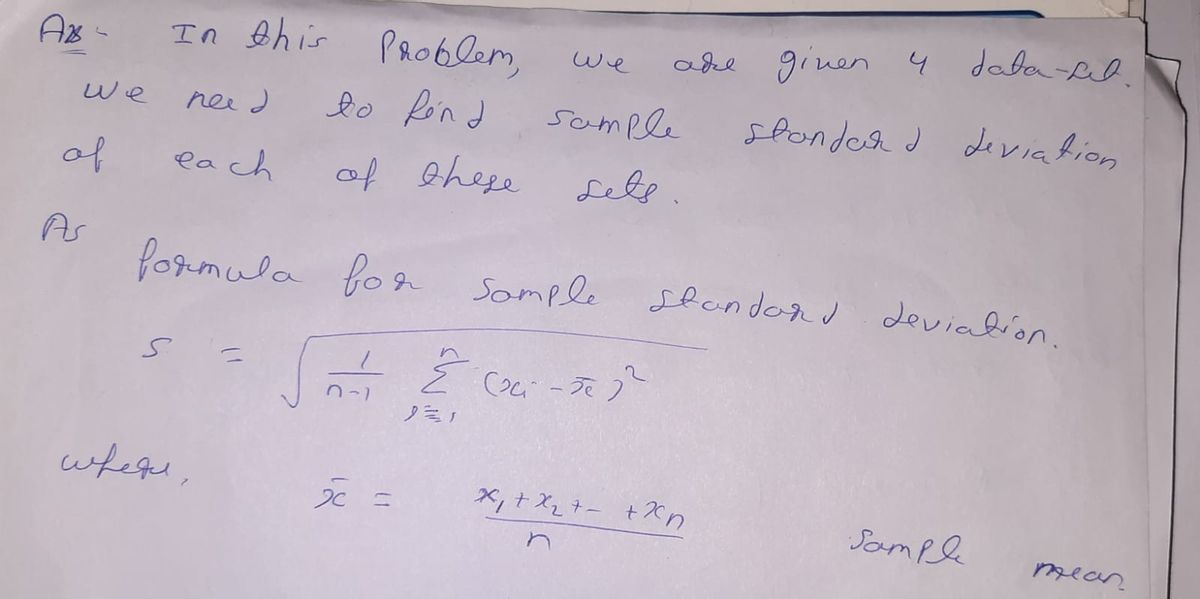 As- In this Problem, we are given 4 data-set.
we need to find sample standard deviation
of each of these sets.
As
formula for sample standard deviation.
s = √(1/(n-1) Σ_{i=1}^{n} (xi - x̄)²)
where,
x̄ = (x₁+x₂+- +xn)/n sample mean